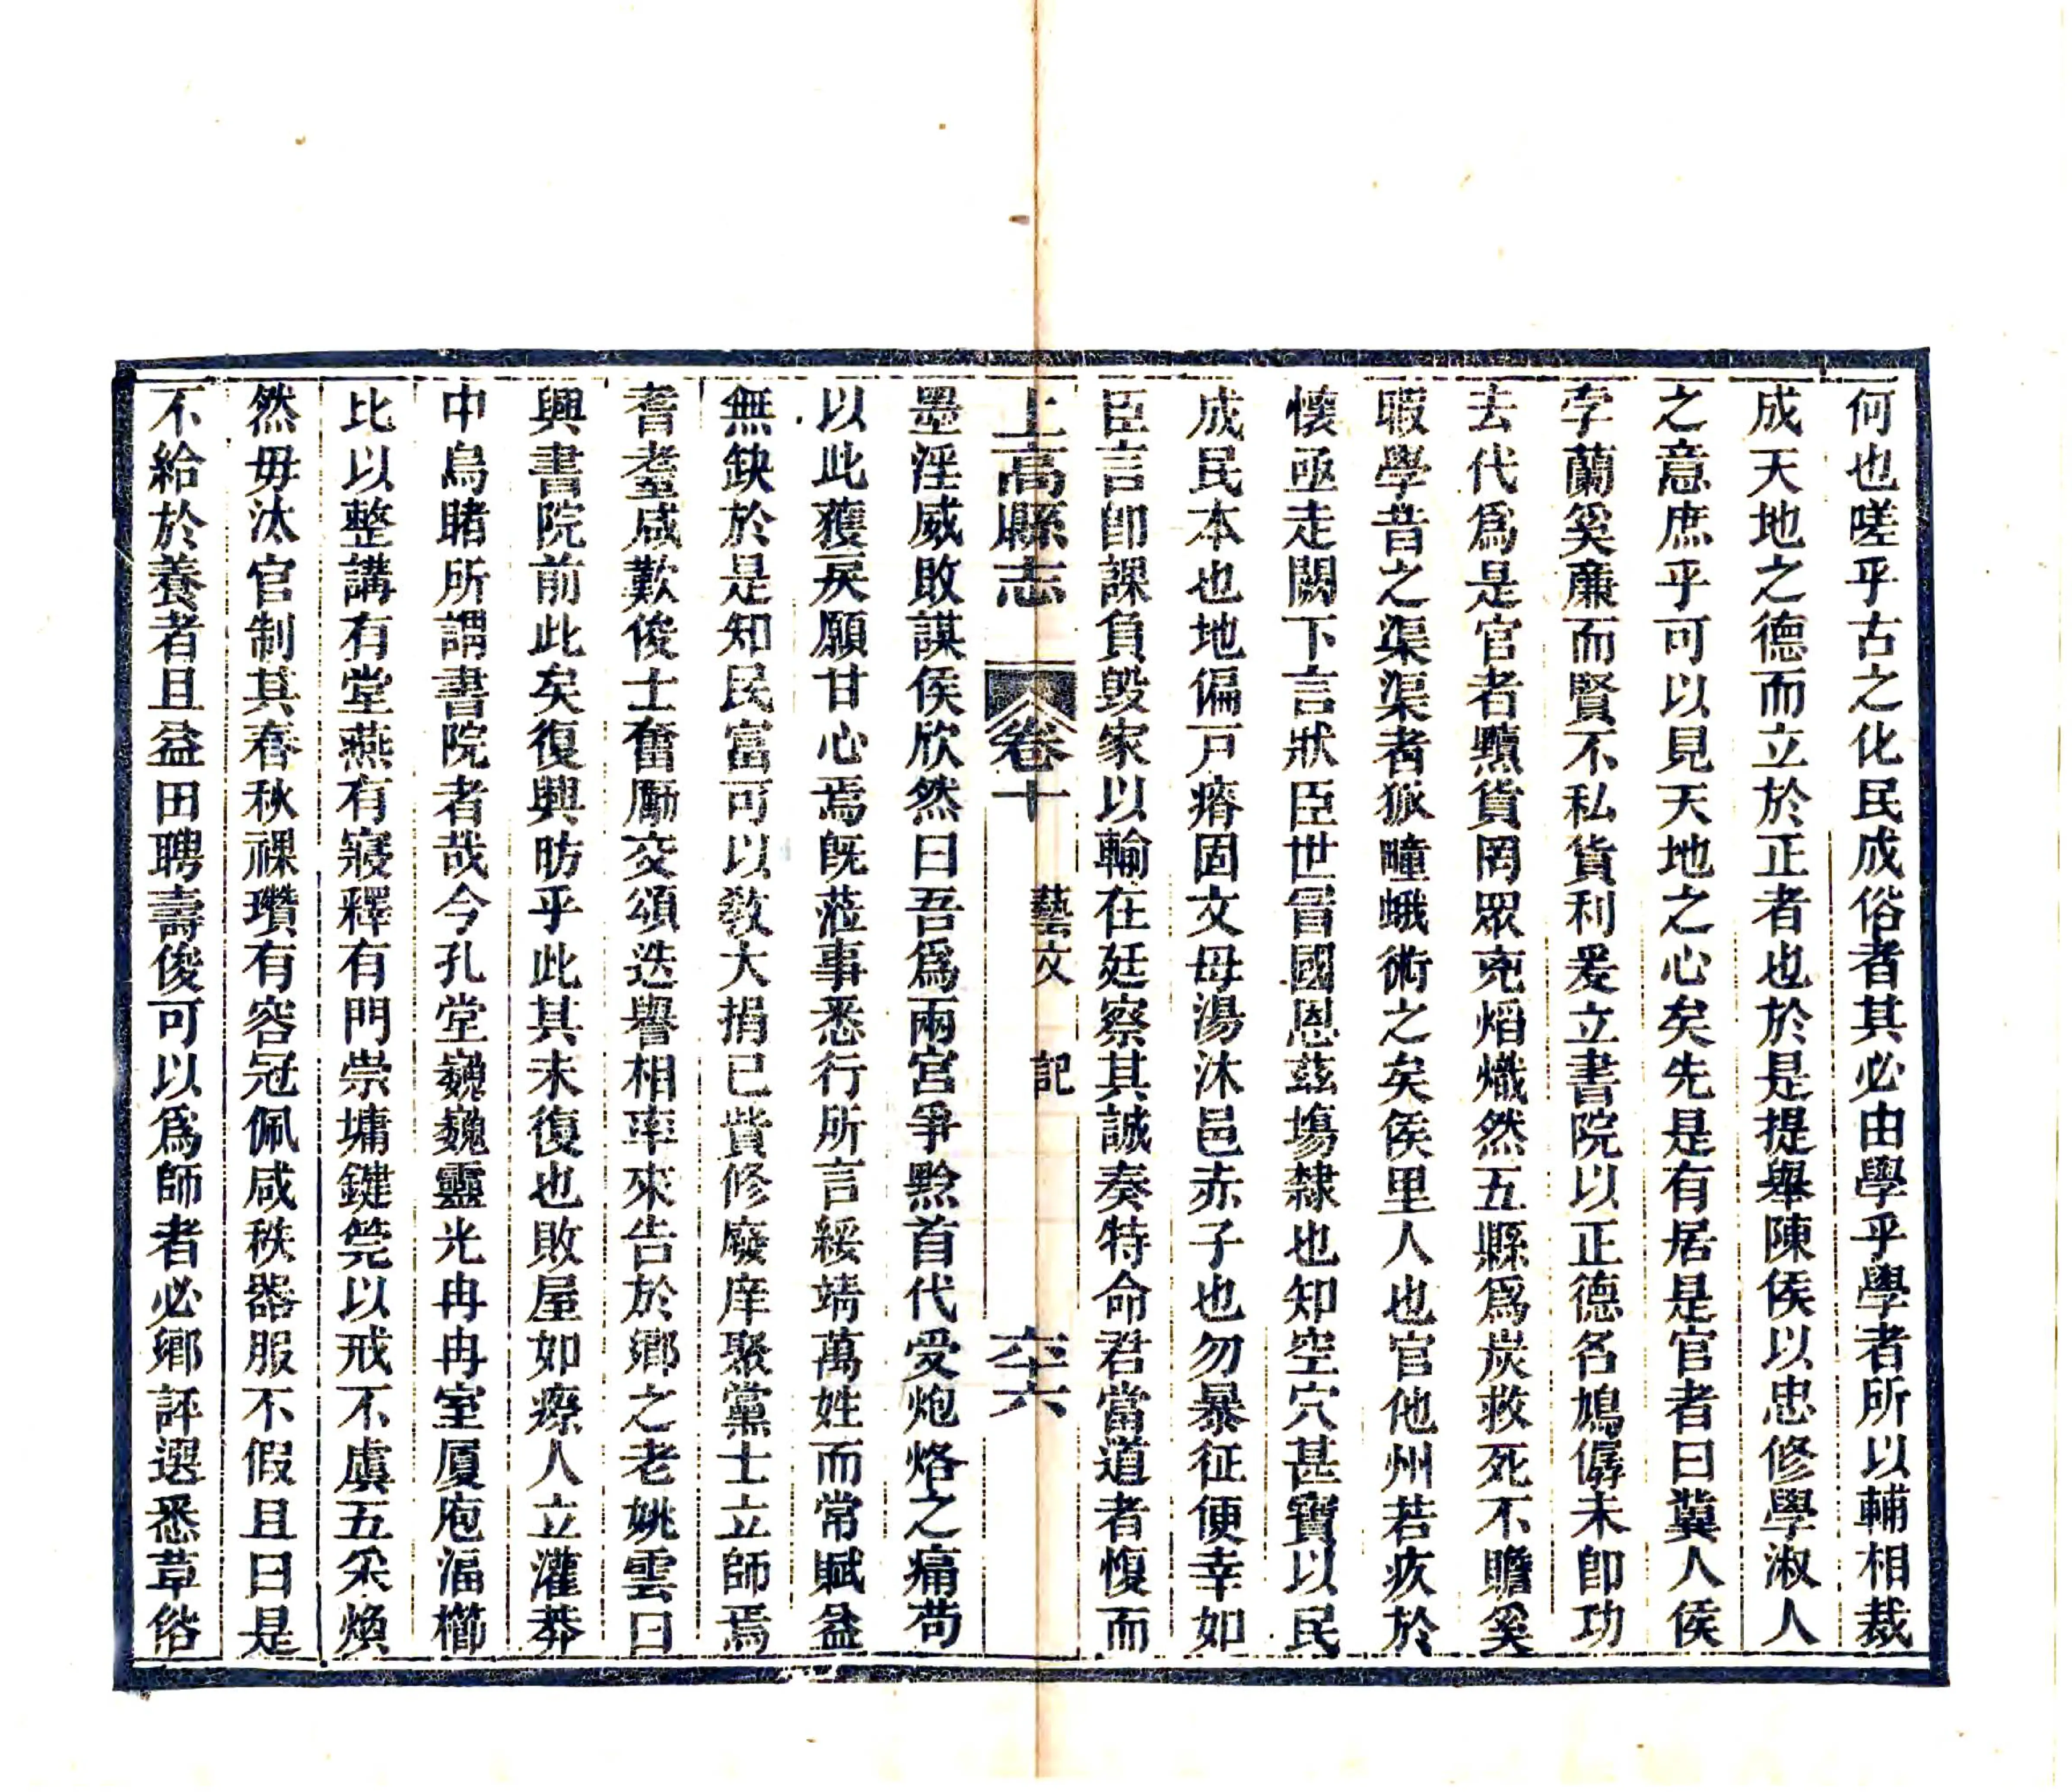 何也嗟乎古之化民成俗者其必由學乎學者所以輔相裁
成天地之德而立於正者也於是提舉陳侯以忠修學淑人
之意庶乎可以見天地之心矣先是有居是官者曰冀人侯
孛蘭奚廉而賢不私貨利爰立書院以正德名鳩僝未卽功
去代爲是官者黷貨罔眾兇焰熾然五縣爲炭救死不贍奚
暇學昔之渠渠者狐疃蛾術之矣侯里人也官他州若疚於
懷亟走闕下言狀臣世冒國恩茲塲隸也知空穴甚寶以民
成民本也地偏戸瘠固文母湯沐邑赤子也勿暴征便幸如
臣言卽課負毀家以輸在廷察其誠奏特命君當道者愎而
上高縣志 卷十 藝文 記 六十六
墨淫威敗謀侯欣然曰吾爲兩宮爭黔首代受炮烙之痛苟
以此獲戻願甘心焉旣蒞事悉行所言綏靖萬姓而常賦益
無缺於是知民富可以敎大捐已貲修廢庠聚黨士立師焉
耆耋咸歎俊士奮勵交頌迭譽相率來告於鄉之老姚雲曰
興書院前此矣復興昉乎此其未復也敗屋如瘵人立灌莽
中烏睹所謂書院者哉今孔堂巍巍靈光冉冉室厦庖湢櫛
比以整講有堂燕有寢釋有門崇墉鍵筦以戒不虞五采煥
然毋汰官制其春秋祼瓚有容冠佩咸秩器服不假且曰是
不給於養者且益田聘壽俊可以爲師者必鄉評選悉草俗